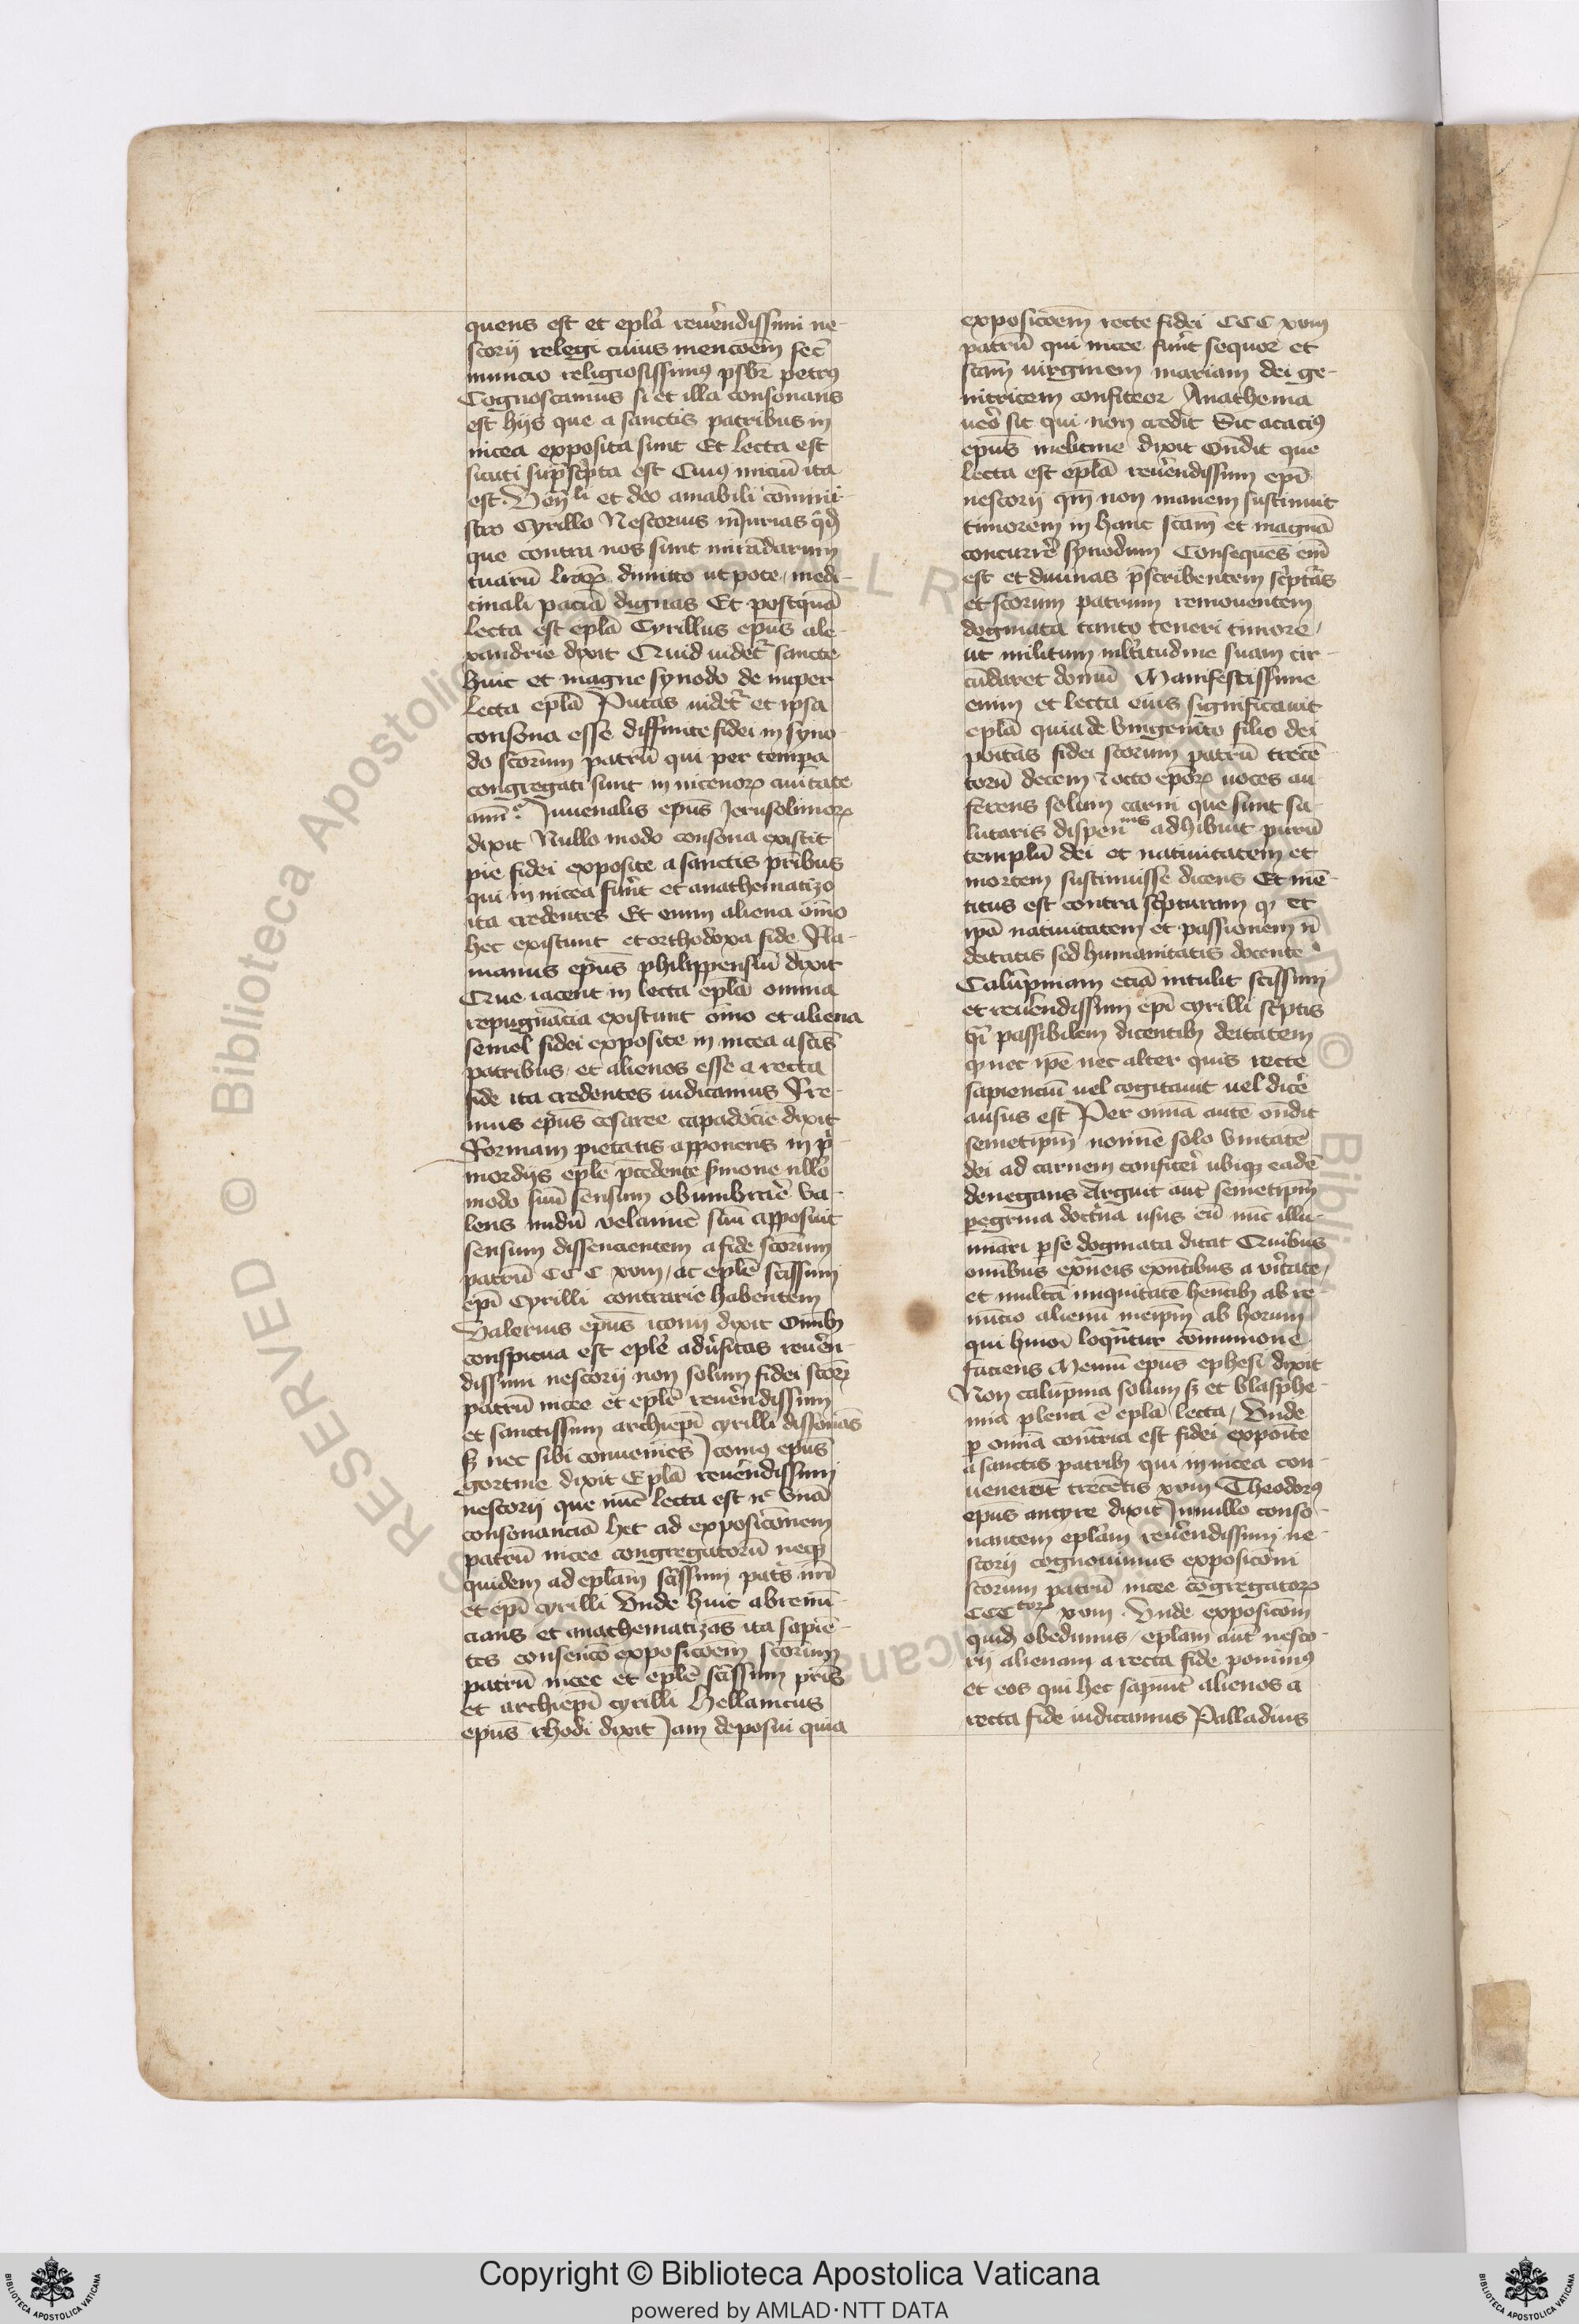 quens est et epla reuerendissimi ne-
storij relegi cuius mencoem fec
nuncio religiosissimus psbr petrus
Cognoscamus si et illa consonans
est hijs que a sanctis patribus in
nicea exposita sunt Et lecta est
sicuti supscpta est Cuius iniciu ita
est et deo amabili comini-
stro Cyrillo Nestorius iniurias qd
que contra nos sunt mirandarum
tuaru dimitto ut pote medi-
cinali dignas Et postqua
lecta est epla Cyrillus epus ale-
xandrie dixit Quid uidetr sancte
huic et magne synodo de nuper
lecta epla Putas uidetr et ipsa
consona esse diffinite fidei in syno-
do scorum patru qui per tempa
congregati sunt in nicenorꝝ ciuitate
ann? Iuuenalis epus Jerusolimorꝝ
dixit Nullo modo consona existit
pie fidei exposite a sanctis pribus
qui in nicea funt et anathematizo
ita credentes Et enim aliena omo
hec existunt et orthodoxa fide Fla-
mianus epus philippensiu dixit
Que iacent in lecta epla omnia
repugnacia existunt omo et aliena
semel fidei exposite in nicea a scis
patribus et alienos esse a recta
fide ita credentes iudicamus Fir-
mus epus cesaree capadocie dixit
Formam pietatis apponens in pi-
mordijs eple pcedente smone nllo
modo suu sensum obumbrare va-
lens nudu velamie suu apposuit
sensum dissencientem a fide scorum
patru CCC xviij ac eple scissimi
epi Cyrilli contrarie habentem
Valerius epus iconij dixit Omibꝫ
conspicua est eple aduersitas reueren-
dissimi nestorij non solum fidei scorꝝ
patru nicee et eple reuerendissimi
et sanctissimi archiepi cyrilli dissonas
sꝫ nec sibi conueniens Iconius epus
gortine dixit Epla reuerendissimi
nestorij que nuc lecta est nc vna
consonancia het ad exposicionem
patru nicee congregatoru neqꝫ
quidem ad eplam scissimi patris nri
et epi cyrilli Vnde huic abrenu-
cians et anathematizas ita sapie-
tes consencio exposicoem scorum
patru nicee et eple scissimi pris
et archiepi cyrilli Hellanicus
epus rhodi dixit Jam deposui quia
exposicoem recte fidei CCC xviij
patru qui nicee funt sequor et
scam uirginem mariam dei ge-
nitricem confiteor Anathema
uero sit qui non credit Sic acacius
epus melitine dixit Ondit que
lecta est epla reuerendissimi epi
nestorij qm non inanem sustinuit
timorem in hanc scam et magna
concurre synodum Consequens em
est et diuinas pscribentem scptas
et scorum patrum remouentem
dogmata tanto teneri timore
ut militum multitudine suam cir-
cudaret domu Manifestissime
enim et lecta eius significauit
epla quia de Vnigenito filio dei
poitas fidei scorum patru trece-
toru decem ⁊ octo eporꝝ uoces au-
ferens solum carni que sunt sa-
lutaris dispenonis adhibuit puru
templu dei et natiuitatem et
mortem sustinuisse dicens Et me-
titus est contra scpturam qꝫ et
ipa natiuitatem et passionem n
deitatis sed humanitatis docente
Calupniam ecia intulit scissimi
et reuerendissimi epi cyrilli scptis
qi passibilem dicentibꝫ deitatem
qꝫ nec ipe nec alter quis recte
sapienciu uel cogitauit uel dice
ausus est Per omia aute ondit
semetipm nomine solo Vnitate
dei ad carnem confiteri ubiqꝫ eade
denegans Arguit aut semetipm
pegrina doctrina usus eu nuc illu-
minari p se dogmata dicat Quibus
omibus exaneis exntibus a uitate
et multa iniquitate hentibꝫ abre-
nuncio alienu meipm ab horum
qui hmoi loquntur comunione
faciens Memnu epus ephesi dixit
Non calupnia solum sꝫ et blasphe-
mia plena e epla lecta Vnde
p omia contraria est fidei exponite
a sanctis patribꝫ qui in nicea con-
uenerut trecetis xviij Theodorus
epus ancyre dixit In nullo conso-
nantem eplam reuerendissimi ne-
storij cognouimus exposiconi
scorum patru nicee congregatorꝝ
CCCtorꝝ xviij Vnde exposiconi
quidꝫ obedimus eplam aut nesto-
rij alienam a recta fide ponimus
et eos qui hec sapiut alienos a
recta fide iudicamus Palladius
Copyright © Biblioteca Apostolica Vaticana
powered by AMLAD·NTT DATA